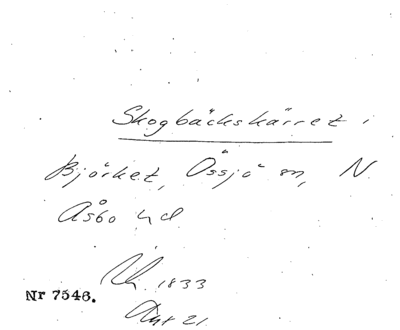 Skogbäckskärret i
Björket, Össjö sn, N.
Åsbo hd
1833
Nr 7546.
21